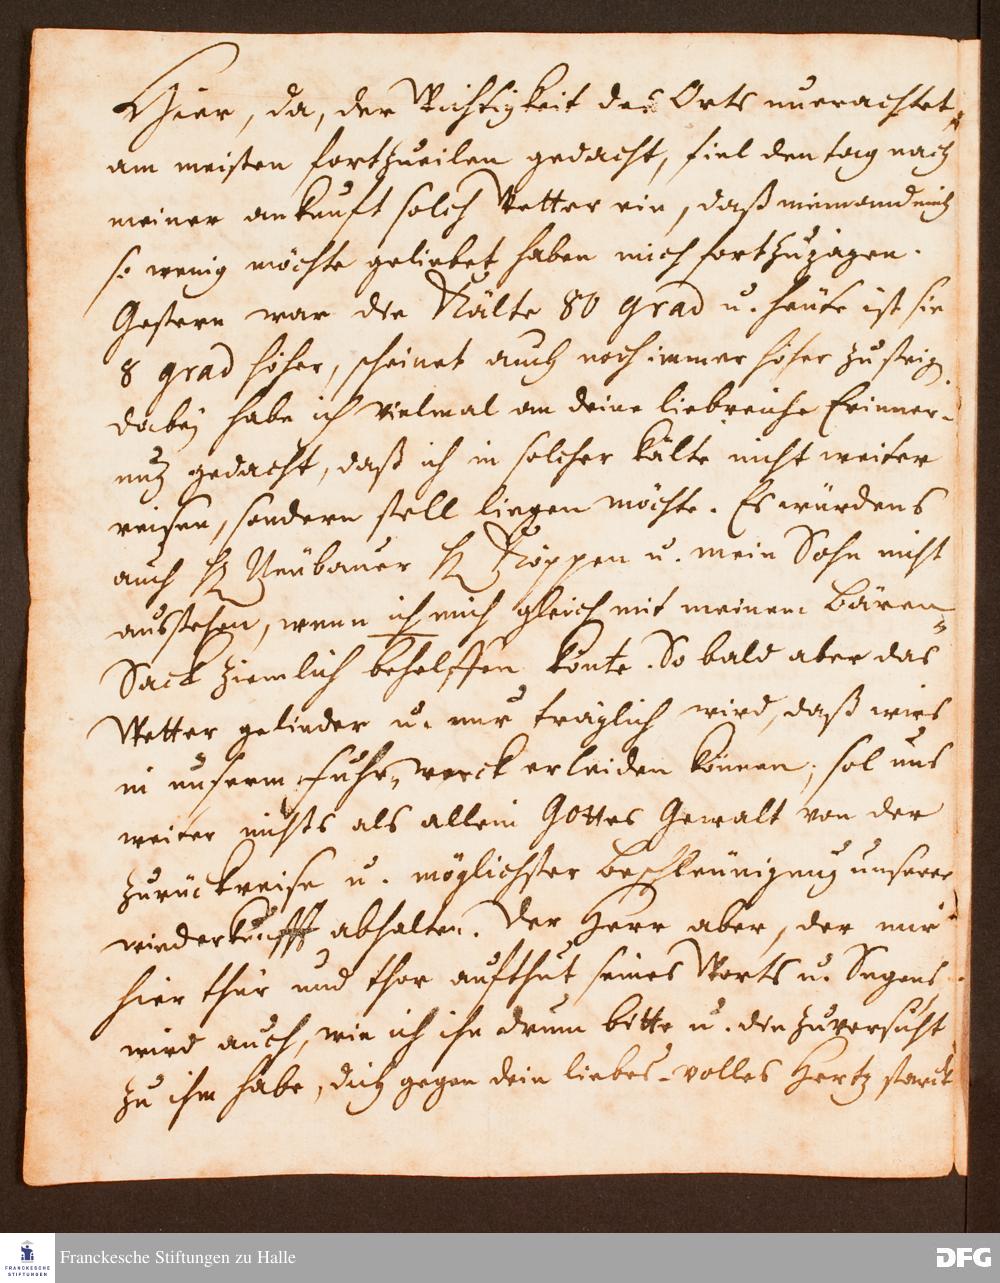 Hier, da, der Wichtigkeit des Orts unerachtet
am meisten fortzueilen gedacht, fiel den tag nach
meiner ankunft solch Wetter ein, daß niemand mich
so wenig möchte geliebet haben mich fortzujagen.
Gestern war die Kälte 80 grad u. heüte ist sie
8 grad höher, scheinet auch noch immer höher zu steig.
dabeÿ habe ich vielmal an deine liebreiche Erinner-
ung gedacht, daß ich in solcher kälte nicht weiter
reisen, sondern stell liegen möchte. Es würdens
auch H. Neübauer H. Köppen u. mein Sohn nicht
ausstehen, wenn ich mich gleich mit meinem Bären
Sack ziemlich behelffen könte. So bald aber das
Wetter gelinder u. nur träglich wird, daß wirs
in unserm fuhr-werck erleiden können, sol uns
weiter nichts als allein GOttes Gewalt von der
zurückreise u. möglichster beschleünigung unserer
wiederkunfft abhalten. Der Herr aber, der mir
hier thür und thor aufthut seines Worts u. Segens
wird auch, wie ich ihn drum bitte u. die zuversicht
zu ihm habe, dich gegen dein liebes-volles Hertz starck
Franckesche Stiftungen zu Halle
FRANCKESCHE
STIFTUNGEN
DFG